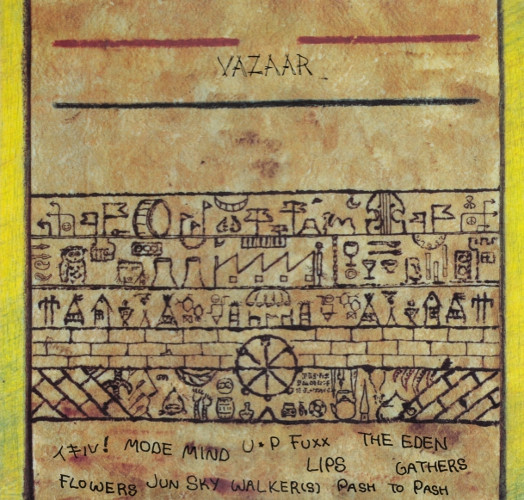 VAZAAR
イキル! MODE MIND U★P FUXX THE EDEN
LIPS GATHERS
FLOWERS JUN SKY WALKER(S) PASH TO PASH